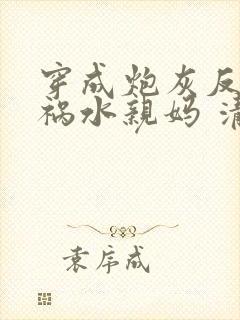 穿成炮灰反
祸水亲妈 清
袁序成